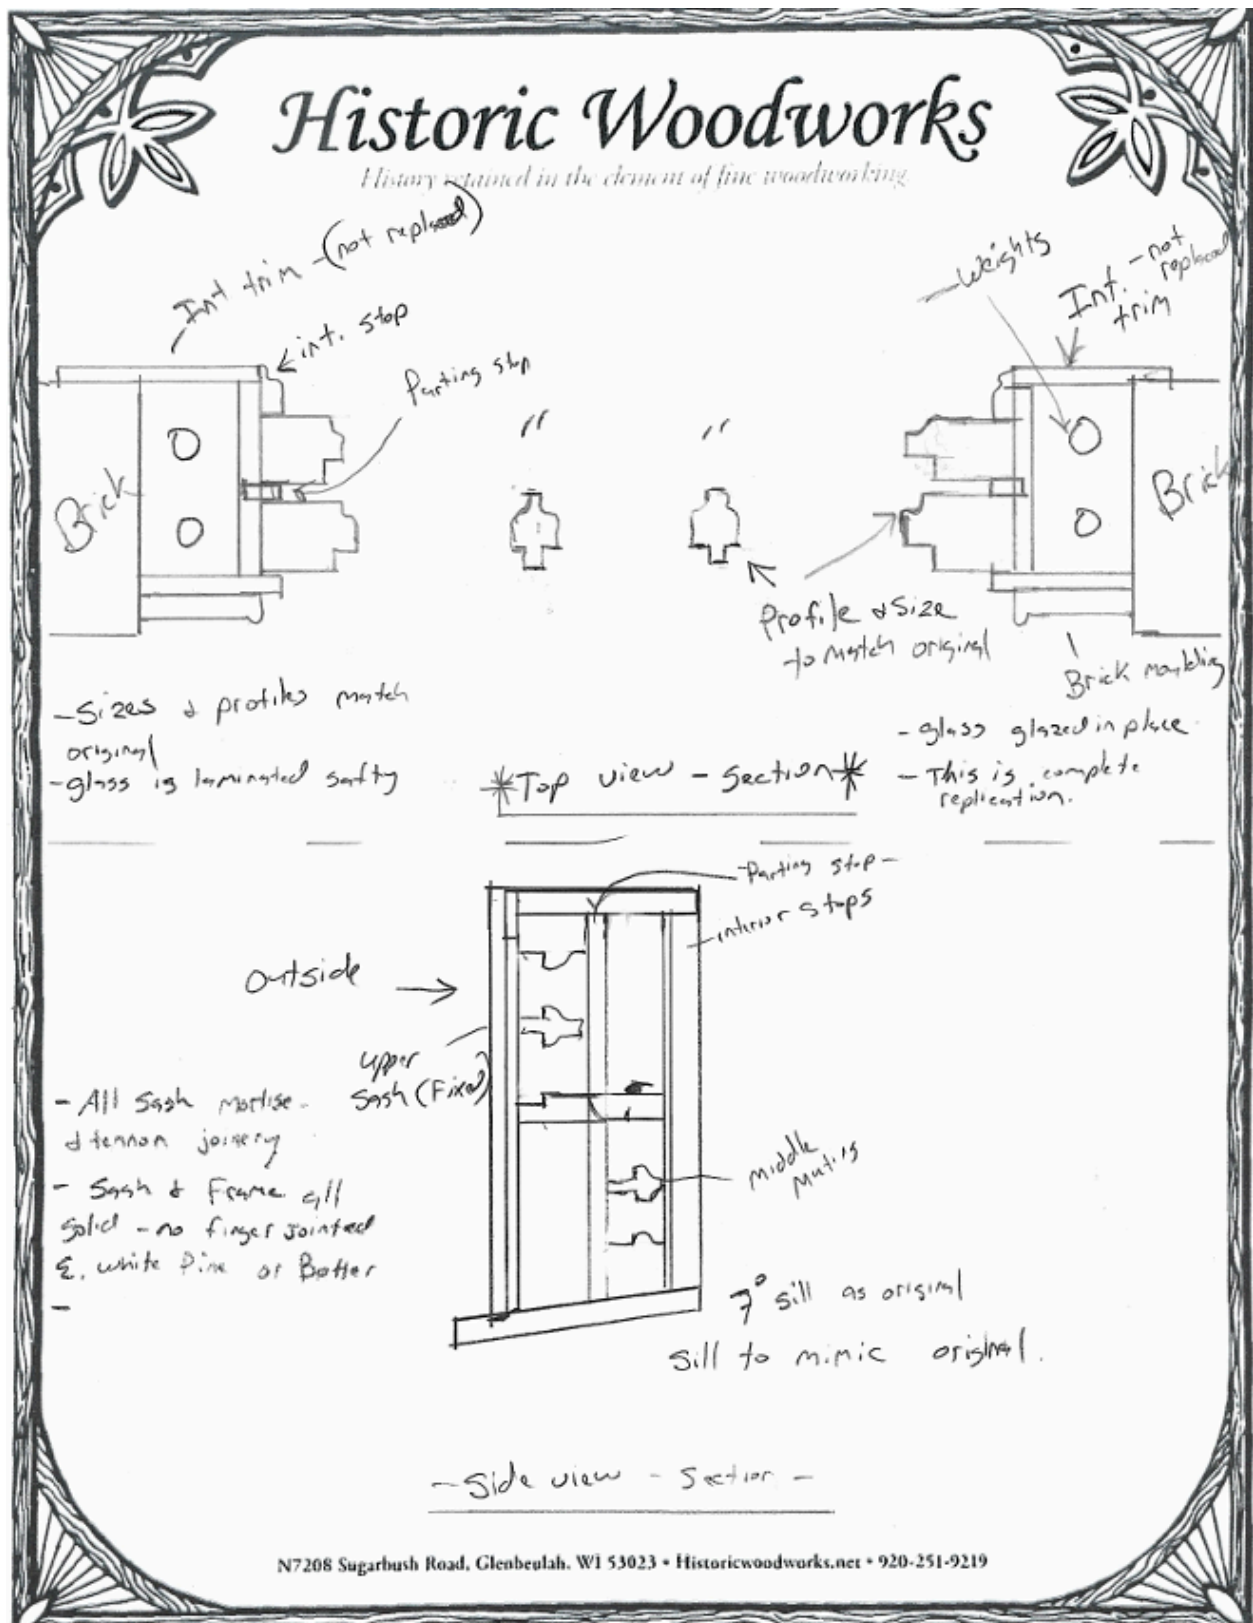 Historic Woodworks
History retained in the element of fine woodworking
Int trim - (not replaced)
int. stop
Parting stop
Weights
Int. - not
replaced
trim
Brick
"
"
Brick
Profile & Size
to match original
Brick moulding
- Sizes & profiles match
original
- glass is laminated safty
*Top view - Section*
- glass glazed in place
- This is complete
replication.
- Parting stop -
interior stops
Outside
upper
Sash (Fixed)
- All Sash mortise
& tennon joinery
- Sash & Frame all
solid - no finger jointed
E. white Pine or Better
-
middle
7° sill as original
Sill to mimic original.
- Side view - Section -
N7208 Sugarbush Road, Glenbeulah, WI 53023 • Historicwoodworks.net • 920-251-9219